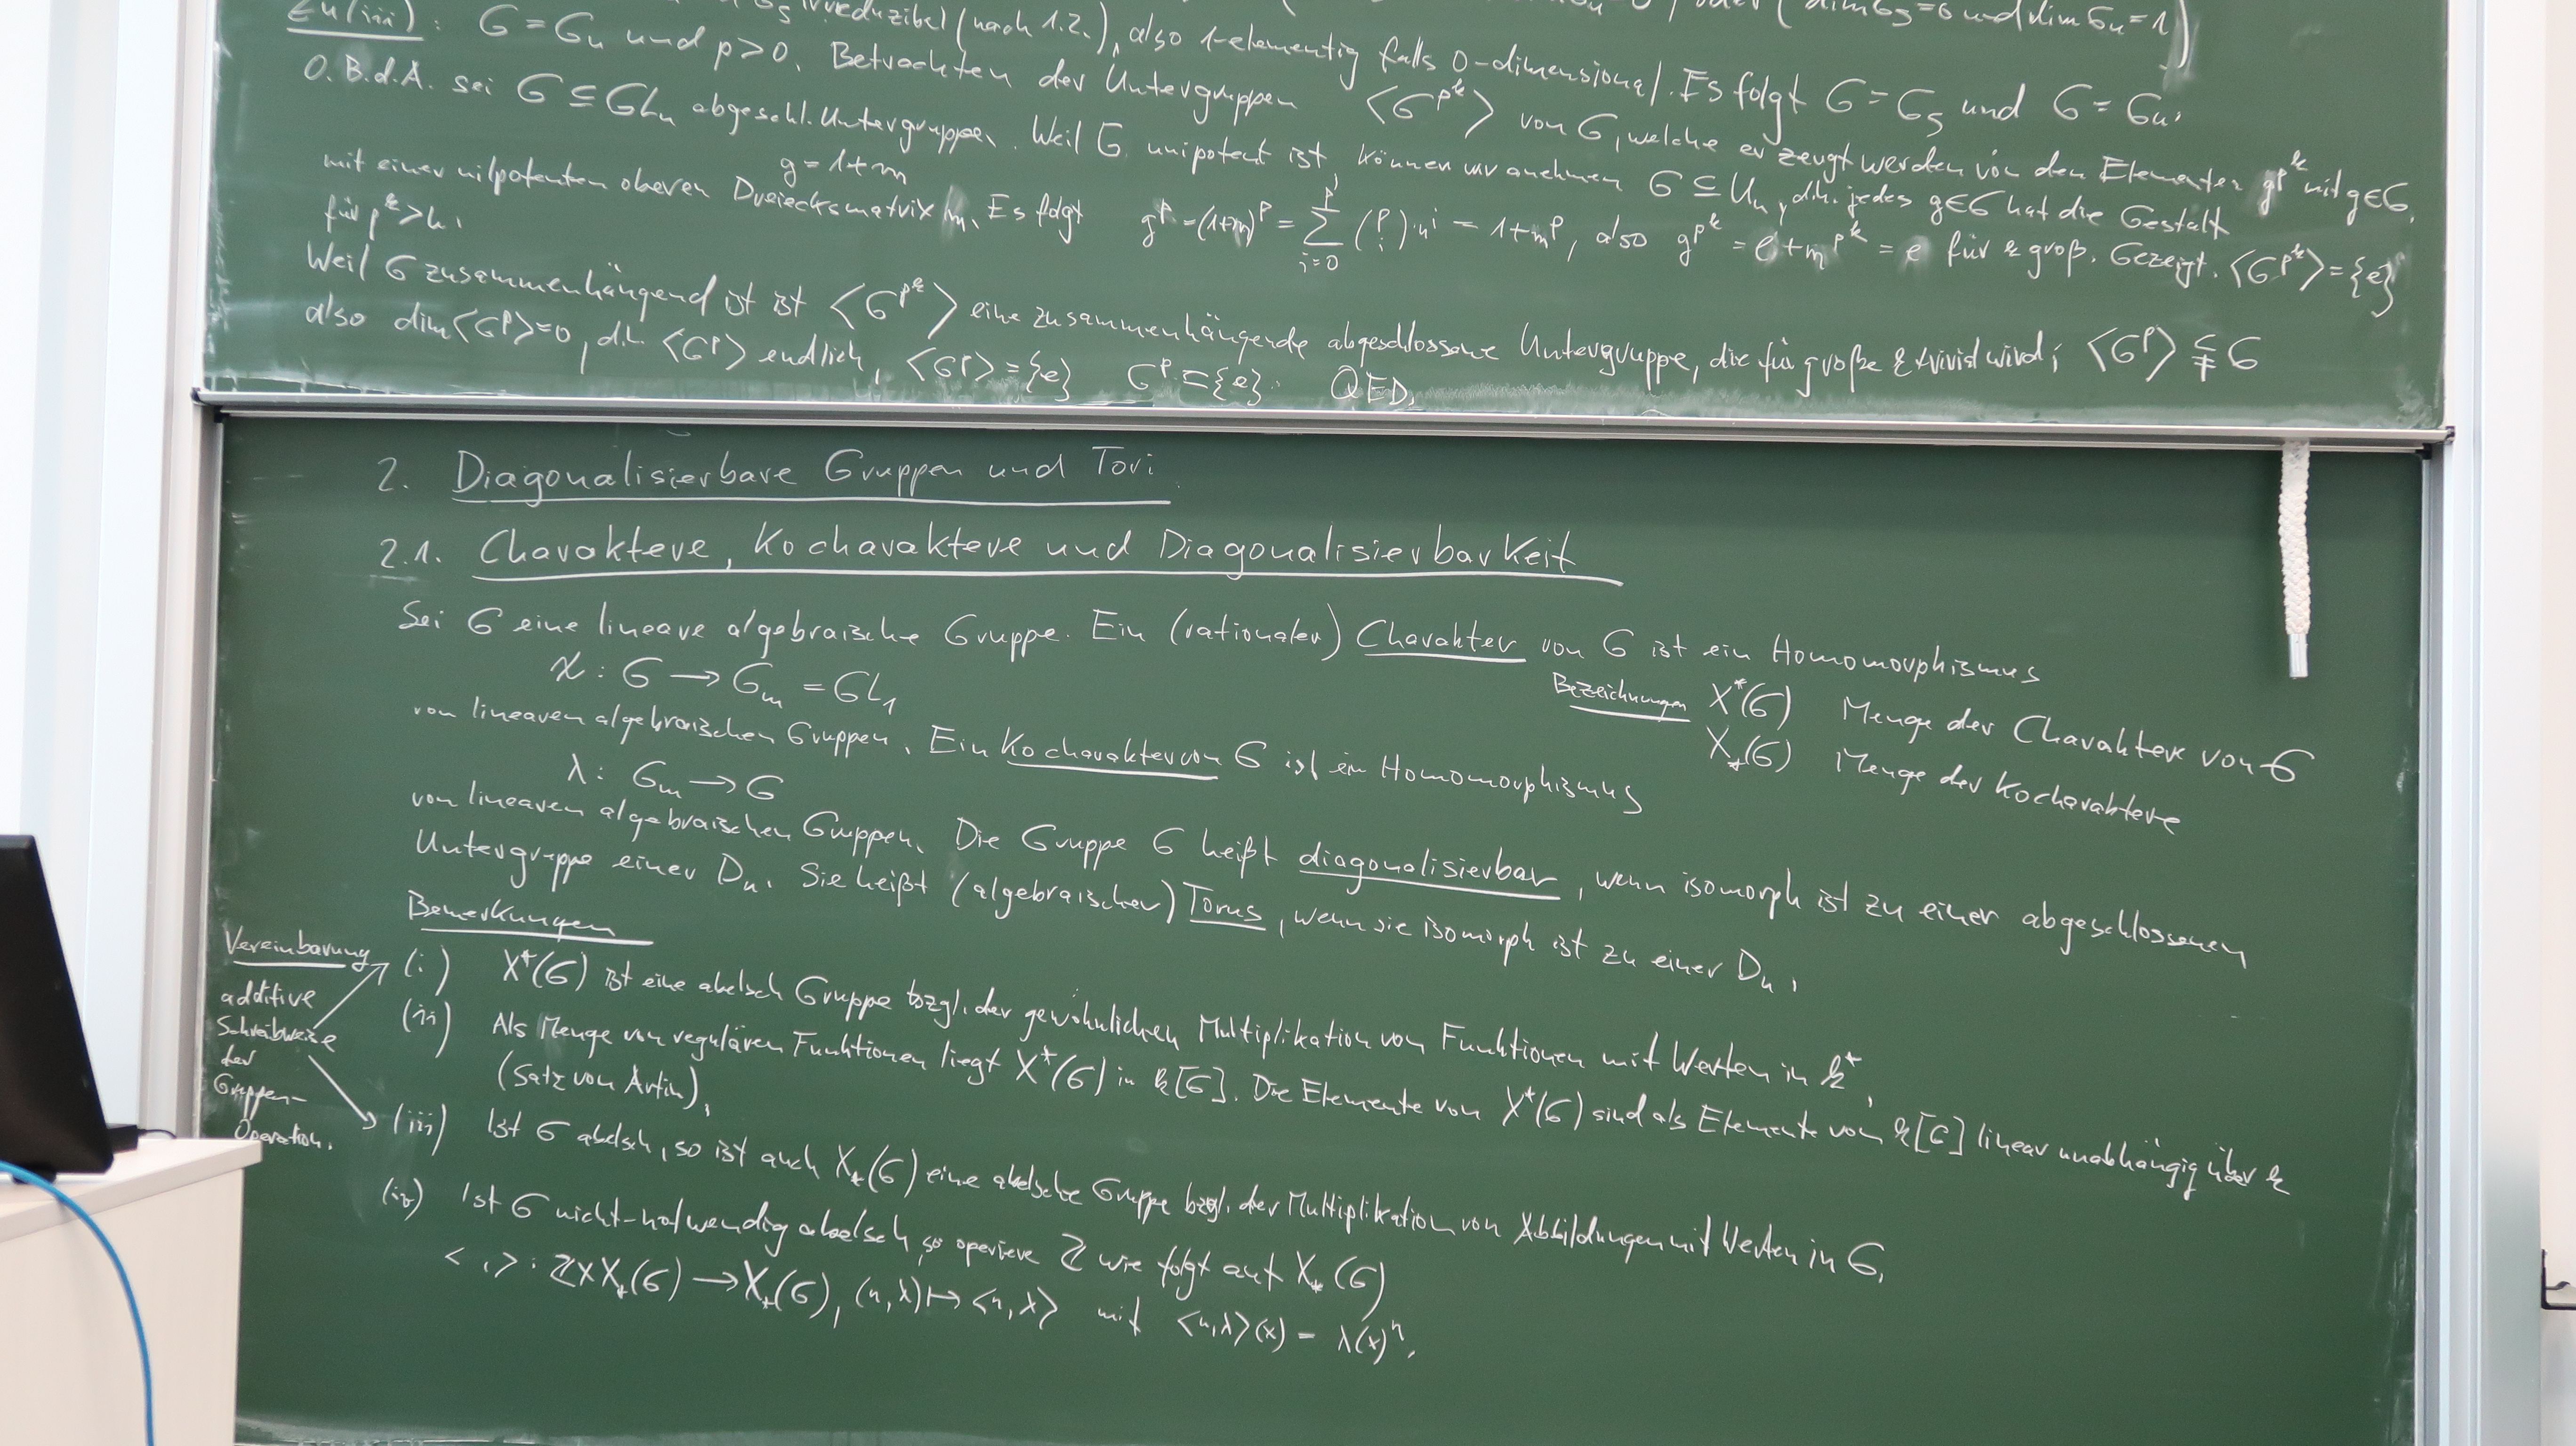 irreduzibel (nach 1.2.), also 1-elementig falls 0-dimensional. Es folgt G = G_s und G = G_u.
Zu (iii): G = G_u und p > 0. Betrachten der Untergruppen ⟨G^{p^k}⟩ von G, welche erzeugt werden von den Elementen g^{p^k} mit g∈G.
O.B.d.A. sei G ⊆ GL_n abgeschl. Untergruppe. Weil G unipotent ist, können wir annehmen G ⊆ U_n, d.h. jedes g∈G hat die Gestalt
g = 1+m
mit einer nilpotenten oberen Dreiecksmatrix m. Es folgt g^p = (1+m)^p = ∑_{i=0}^{p} (p i)·m^i = 1+m^p, also g^{p^k} = e+m^{p^k} = e für k groß. Gezeigt. ⟨G^{p^k}⟩ = {e}
für p^k > n.
Weil G zusammenhängend ist ist ⟨G^{p^k}⟩ eine zusammenhängende abgeschlossene Untergruppe, die für große k trivial wird; ⟨G^p⟩ ⊊ G
also dim⟨G^p⟩=0, d.h. ⟨G^p⟩ endlich, ⟨G^p⟩ = {e} G^p ⊆ {e}. QED.
2. Diagonalisierbare Gruppen und Tori
2.1. Charaktere, Kocharaktere und Diagonalisierbarkeit
Sei G eine lineare algebraische Gruppe. Ein (rationaler) Charakter von G ist ein Homomorphismus
χ : G → G_m = GL_1
Bezeichnungen X*(G) Menge der Charaktere von G
X_*(G) Menge der Kocharaktere
von linearen algebraischen Gruppen. Ein Kocharakter von G ist ein Homomorphismus
λ : G_m → G
von linearen algebraischen Gruppen. Die Gruppe G heißt diagonalisierbar, wenn isomorph ist zu einer abgeschlossenen
Untergruppe einer D_n. Sie heißt (algebraischer) Torus, wenn sie isomorph ist zu einer D_n.
Bemerkungen
Vereinbarung
additive
Schreibweise
der
Gruppen-
Operation.
(i) X*(G) ist eine abelsch Gruppe bzgl. der gewöhnlichen Multiplikation von Funktionen mit Werten in k*.
(ii) Als Menge von regulären Funktionen liegt X*(G) in k[G]. Die Elemente von X*(G) sind als Elemente von k[G] linear unabhängig über k
(Satz von Artin).
(iii) Ist G abelsch, so ist auch X_*(G) eine abelsche Gruppe bzgl. der Multiplikation von Abbildungen mit Werten in G.
(iv) Ist G nicht-notwendig abelsch, so operiere ℤ wie folgt auf X_*(G)
< , > : ℤ×X_*(G) → X_*(G), (n,λ) ↦ <n,λ> mit <n,λ>(x) = λ(x)^n.